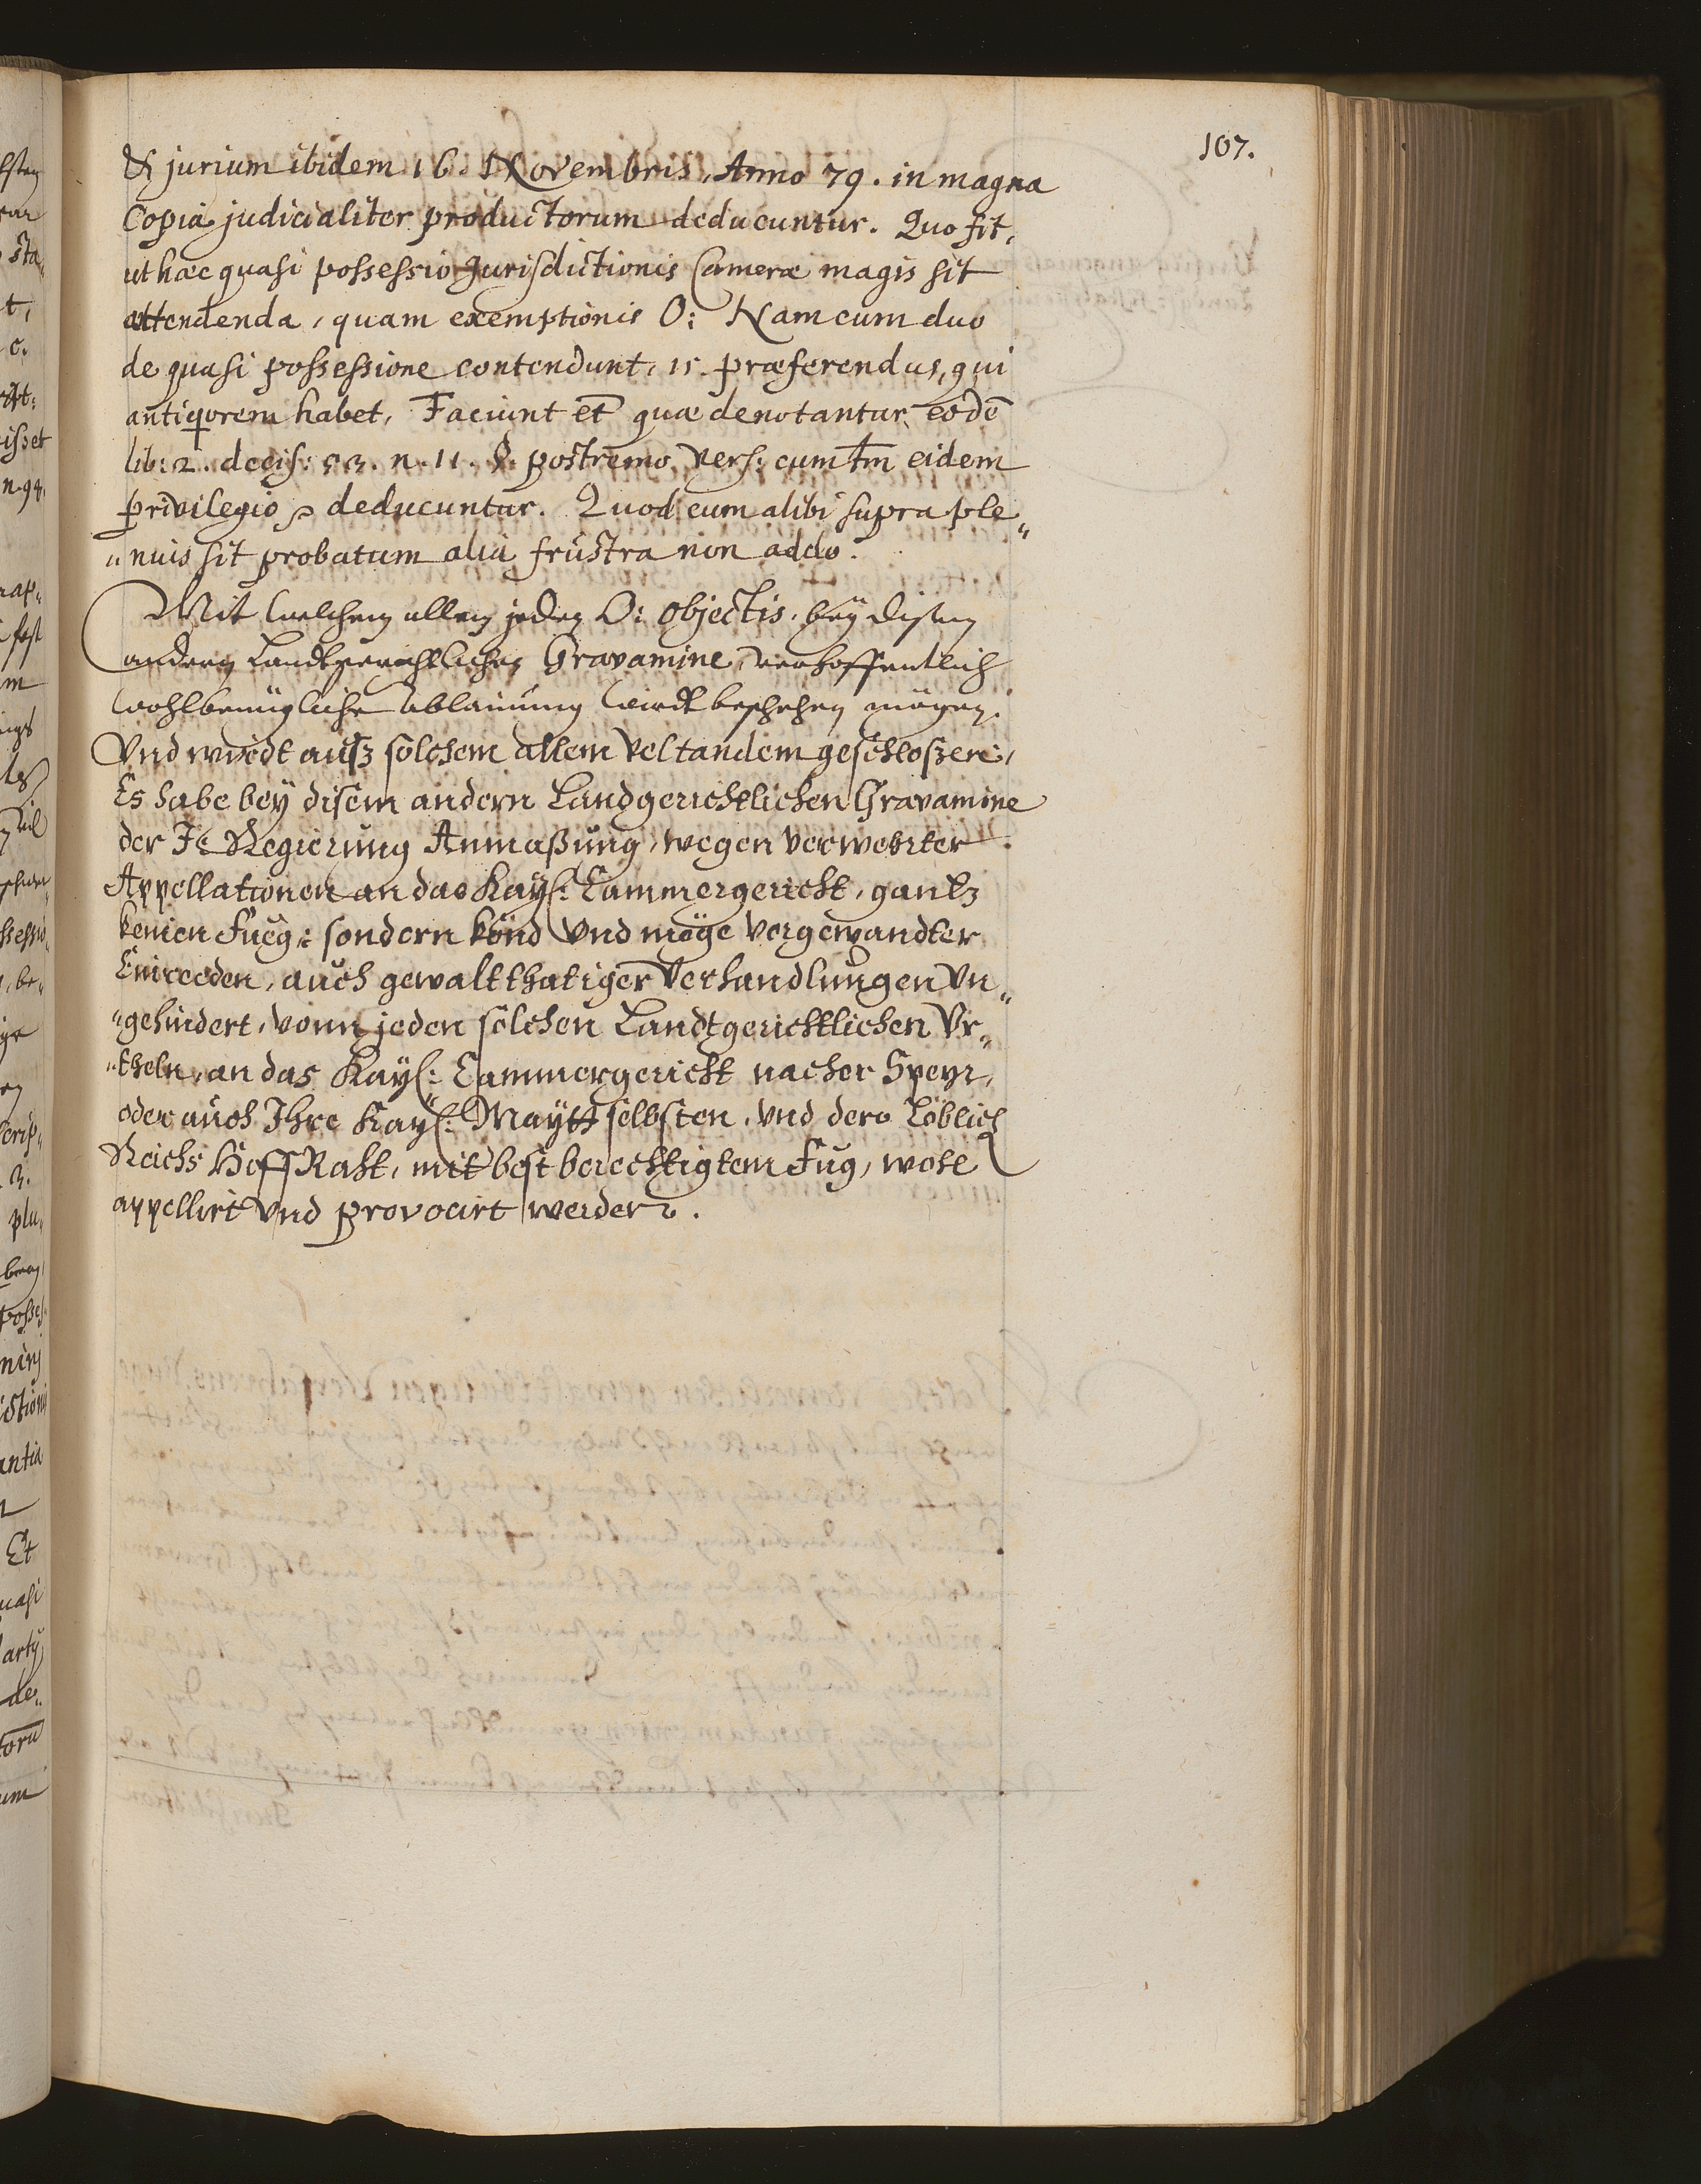 107.
& jurium ibidem 16. Novembris, Anno 79. in magna
Copia judicialiter productorum deducuntur. Quo fit,
ut hæc quasi possessio Jurisdictionis Cameræ magis sit
attendenda, quam exemptionis O: Nam cum duo
de quasi possessione contendunt, is præferendus, qui
antiqiorem habet, Faciunt et quæ denotantur eodē
lib: 2. decis: 53. n. 11. §. postremo, vers: cum tm̄ eidem
privilegio deducuntur. Quod cum alibi supra ple„
„nius sit probatum alia frustra non addo.
Mit welchen allen jeden O: objectis, beÿ disem
andern Landtgerichtlichen Gravamine, verhoffentlich
wohlbenügliche Ablainung wirdt beschehen mögen.
Vnd wirdt auß solchem allem vel tandem geschloßen,
Es habe beÿ disem andern Landgerichtlichen Gravamine
der Regierung Anmaßung, wegen verwehrter
Appellationen an das Kaÿs: Cammergericht, gantz
keinen Fueg, sondern könd vnd möge vorgewandter
Einreeden, auch gewaltthatiger Verhandlungen vn„
„gehindert, vonn jeden solchen Landtgerichtlichen Vr„
„theln, an das Kaÿs: Cammergericht nacher Speyr,
oder auch Ihre Kaÿs: Maÿtt selbsten, vnd dero Löblich
Reichs HoffRaht, mit best berechtigtem Fug, wohl
appellirt vnd provocirt werden.